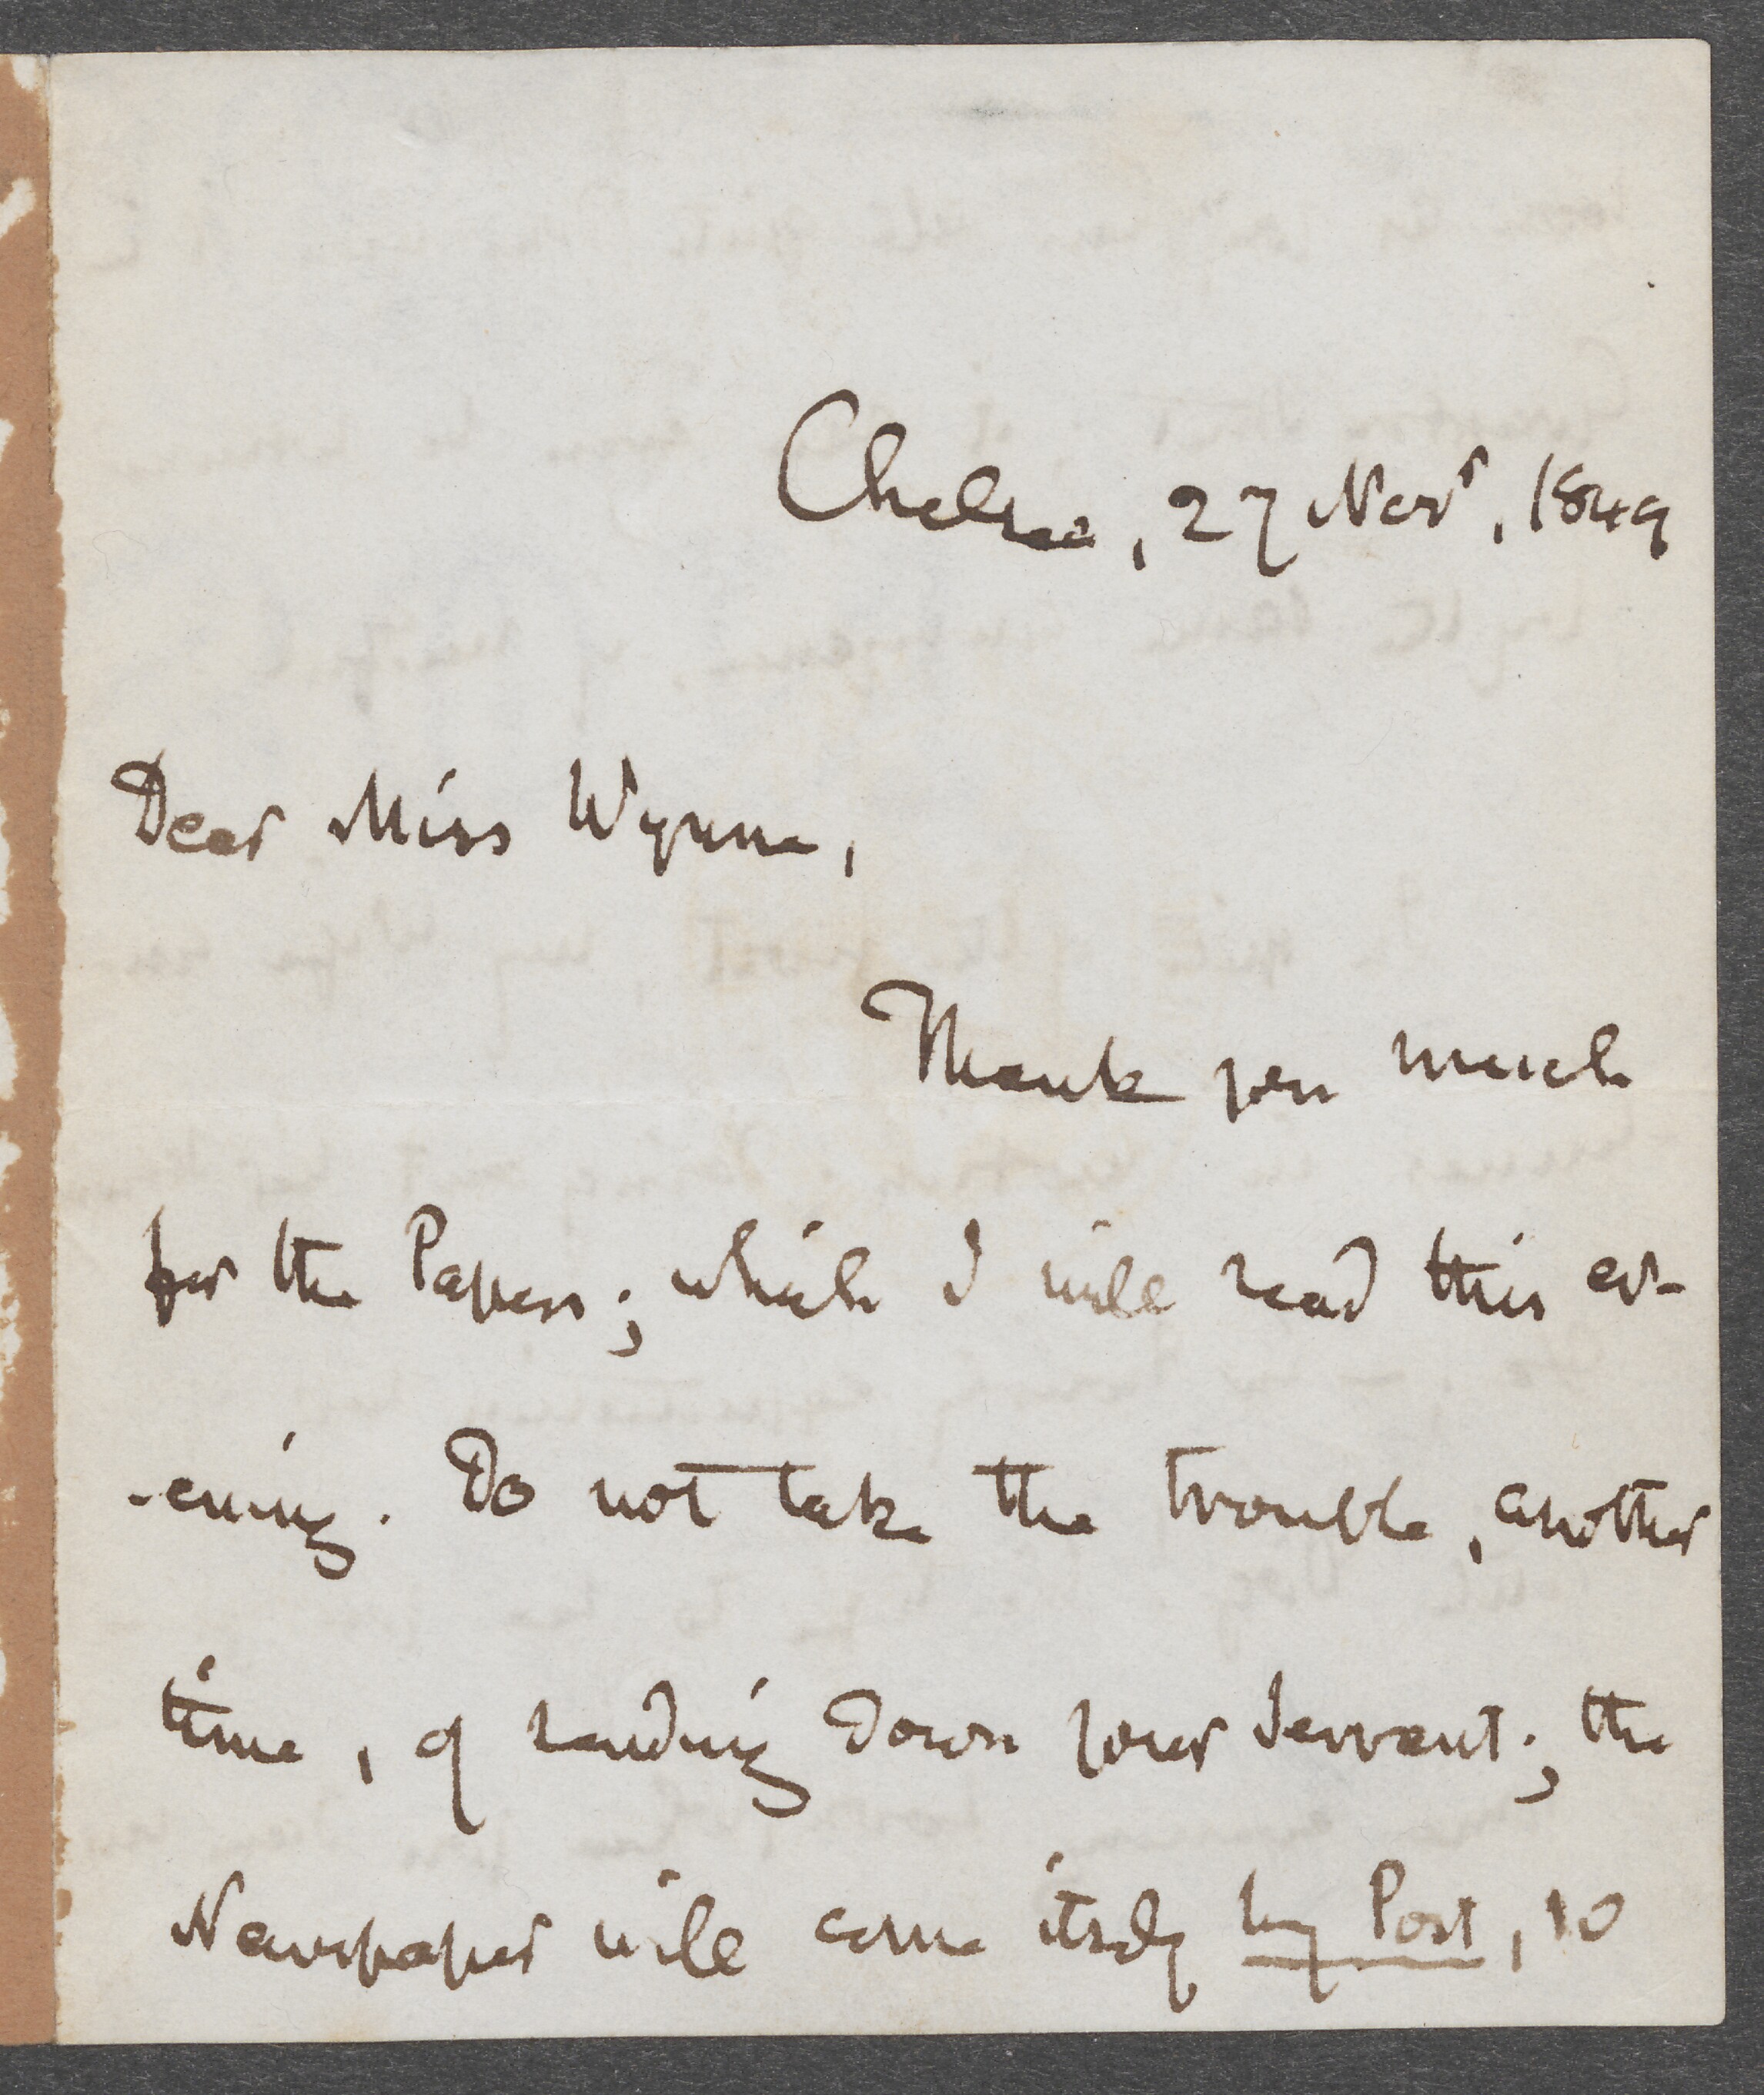 Chelsea, 27 Novr, 1849
Dear Miss Wynne,
Thank you much
for the Papers; which I will read this ev-
-ening. Do not take the trouble, another
time, of sending down your Servant; the
Newspaper will come itself by Post, so